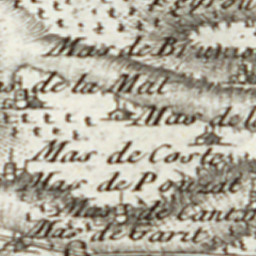 Mas de
de la Mal
Mas de
Mas de Coste
Mas de Pouzat
Mas de
Mas de Garit